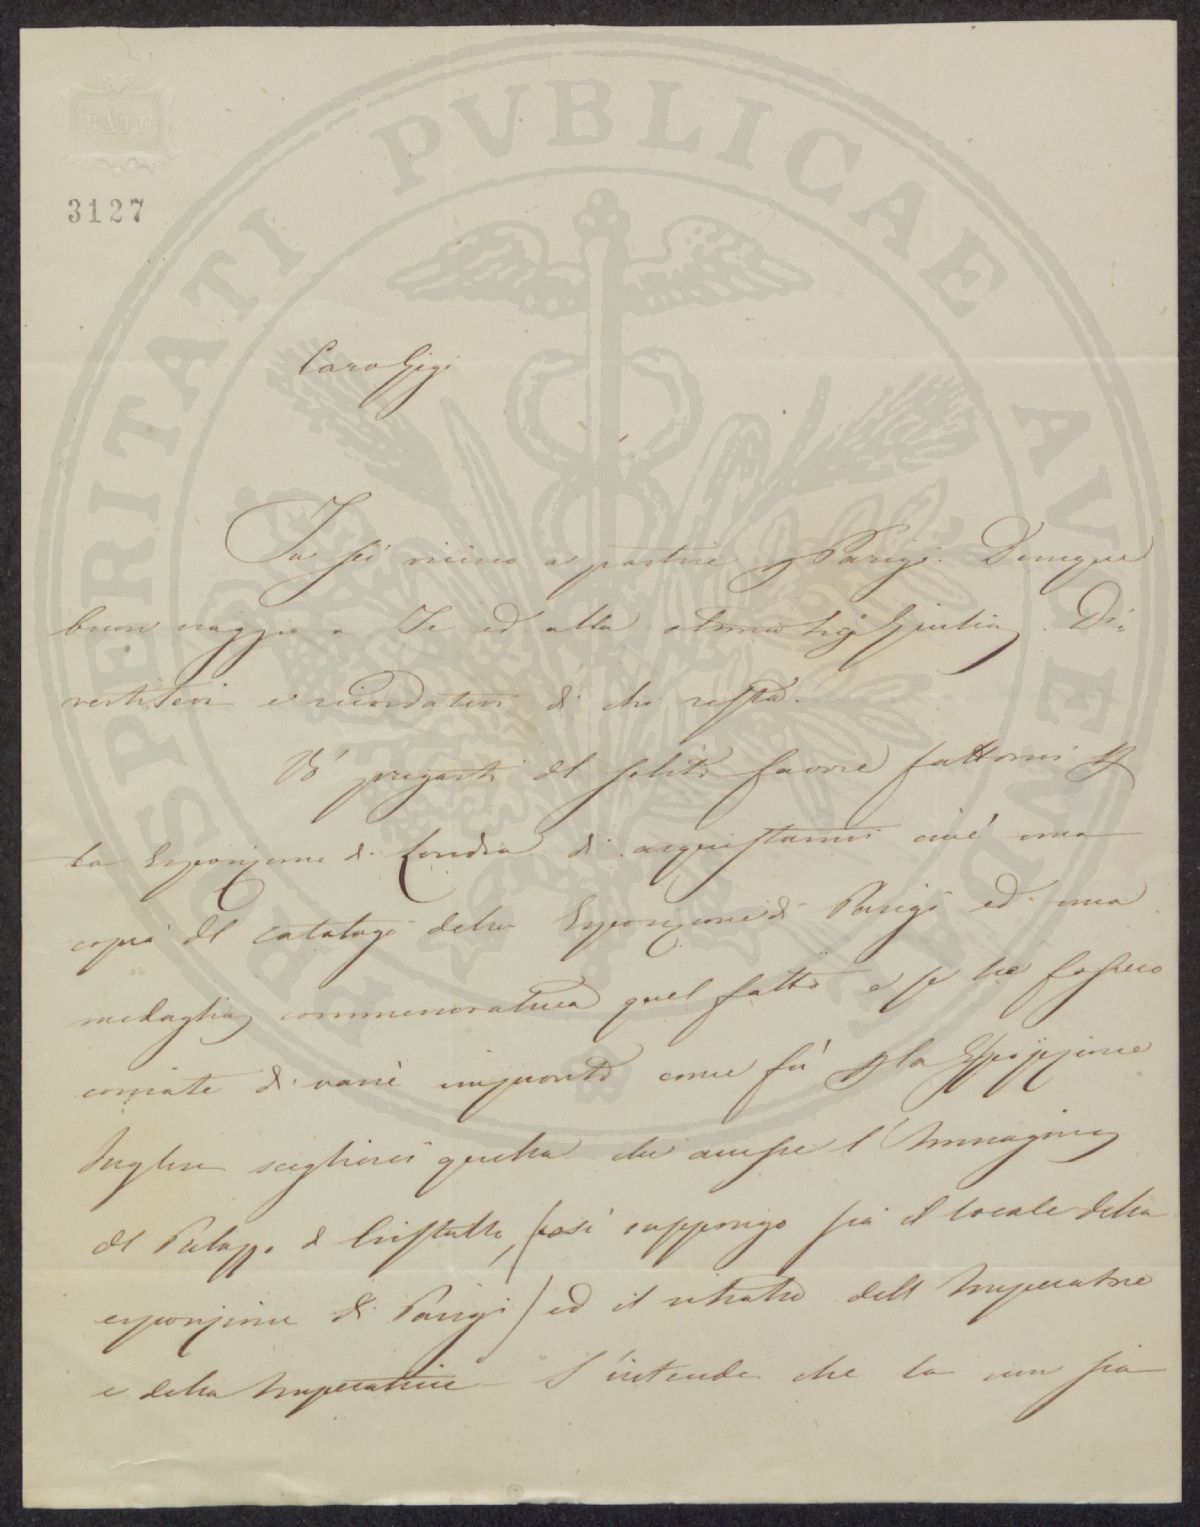 PROSPERITATI PVBLICAE AVGENDAE
BATH
3127
Caro Gigi
Tu sei vicino a partire p Parigi. Dunque
buon viaggio a Te ed alla Sig. Giulia. Di=
vertitevi e ricordatevi di chi resta.
pregarti del solito favore fattomi p
la Esposizione di Londra di acquistarmi cioè una
copia del catalogo della Esposizione di Parigi ed una
medaglia commemorativa quel fatto e se ne fossero
coniate di varie impronte come fu p la Esposizione
Inglese sceglierei quella che avesse l'Immagine
del Palazzo di Cristallo, (così suppongo sia il locale della
esposizione di Parigi) ed il ritratto dell Imperatore
e della Imperatrice S'intende che la cosa sia